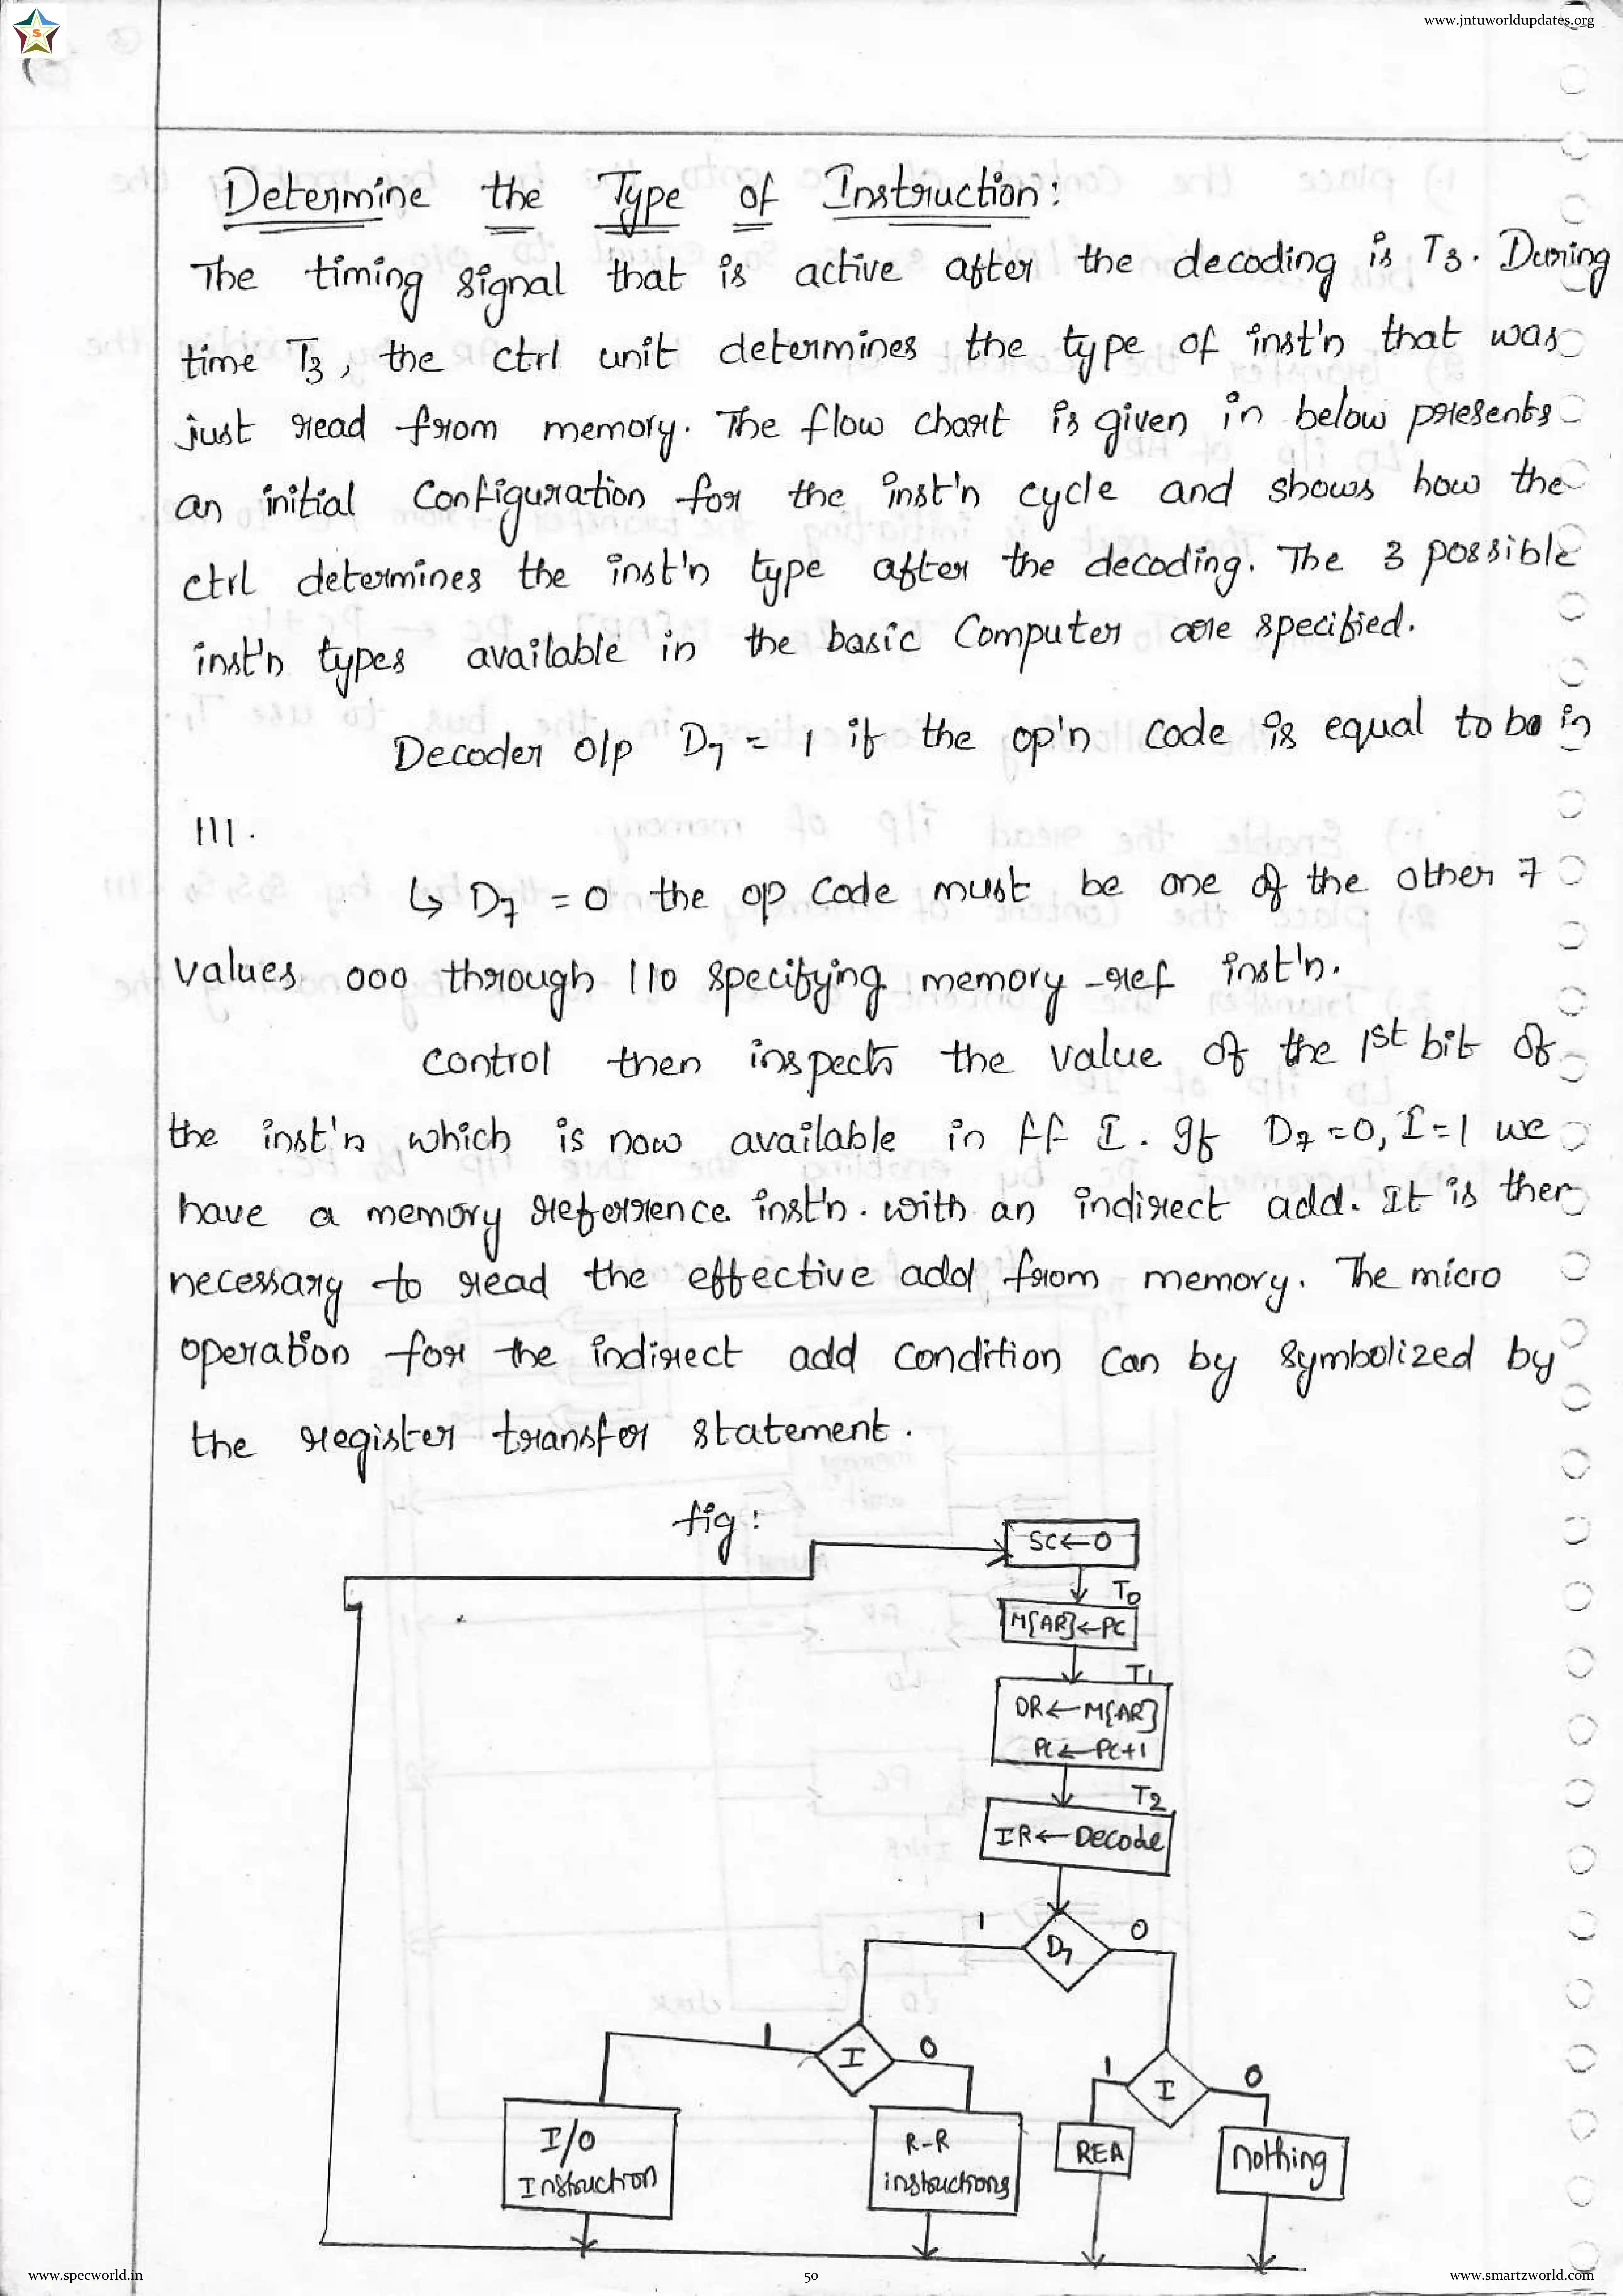 www.jntuworldupdates.org
S
Determine the Type of Instruction:
The timing signal that is active after the decoding is T3. During
time T3, the ctrl unit determines the type of inst'n that was
just read from memory. The flow chart is given in below presents
an initial configuration for the inst'n cycle and shows how the
ctrl determines the inst'n type after the decoding. The 3 possible
inst'n types available in the basic Computer are specified.
Decoder o/p D7 = 1 if the op'n code is equal to be in
111.
↳ D7 = 0 the op code must be one of the other 7
values 000 through 110 specifying memory-ref inst'n.
control then inspects the value of the 1st bit of
the inst'n which is now available in ff I. If D7 = 0, I = 1 we
have a memory reference inst'n. with an indirect add. It is then
necessary to read the effective add from memory. The micro
operation for the indirect add condition can by symbolized by
the register transfer statement.
fig:
SC←0
T0
M[AR]←PC
T1
DR←M[AR]
PC←PC+1
T2
IR←Decode
1 D7 0
1 I 0
1 I 0
I/O
Instruction
R-R
instructions
REA
nothing
www.specworld.in
50
www.smartzworld.com